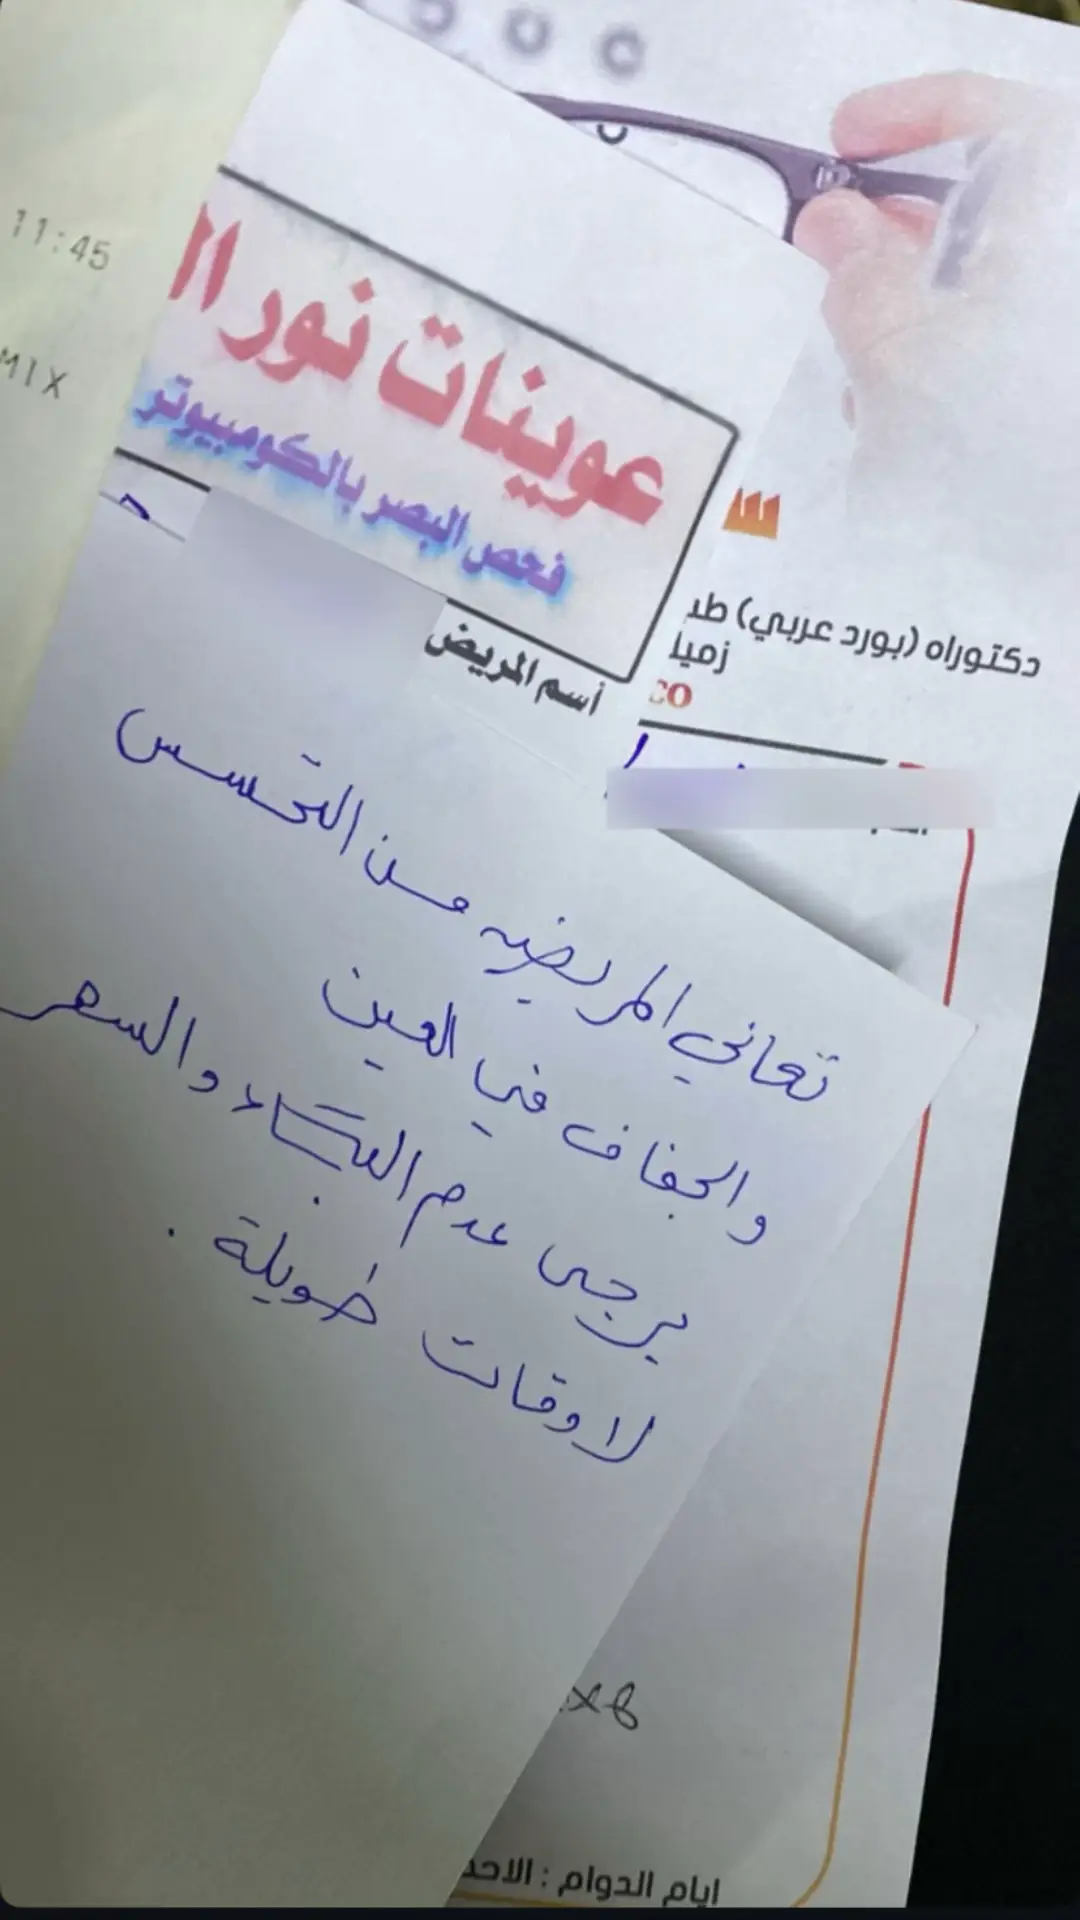 11:45
MIX
عوينات نور ال
فحص البصر بالكومبيوتر
أسم المريض
دكتوراه (بورد عربي) طب
زميل
co
تعاني المريضه من التحسس
والجفاف في العين
يرجى عدم البكاء والسهر
لاوقات طويلة .
x8
ايام الدوام : الاحد